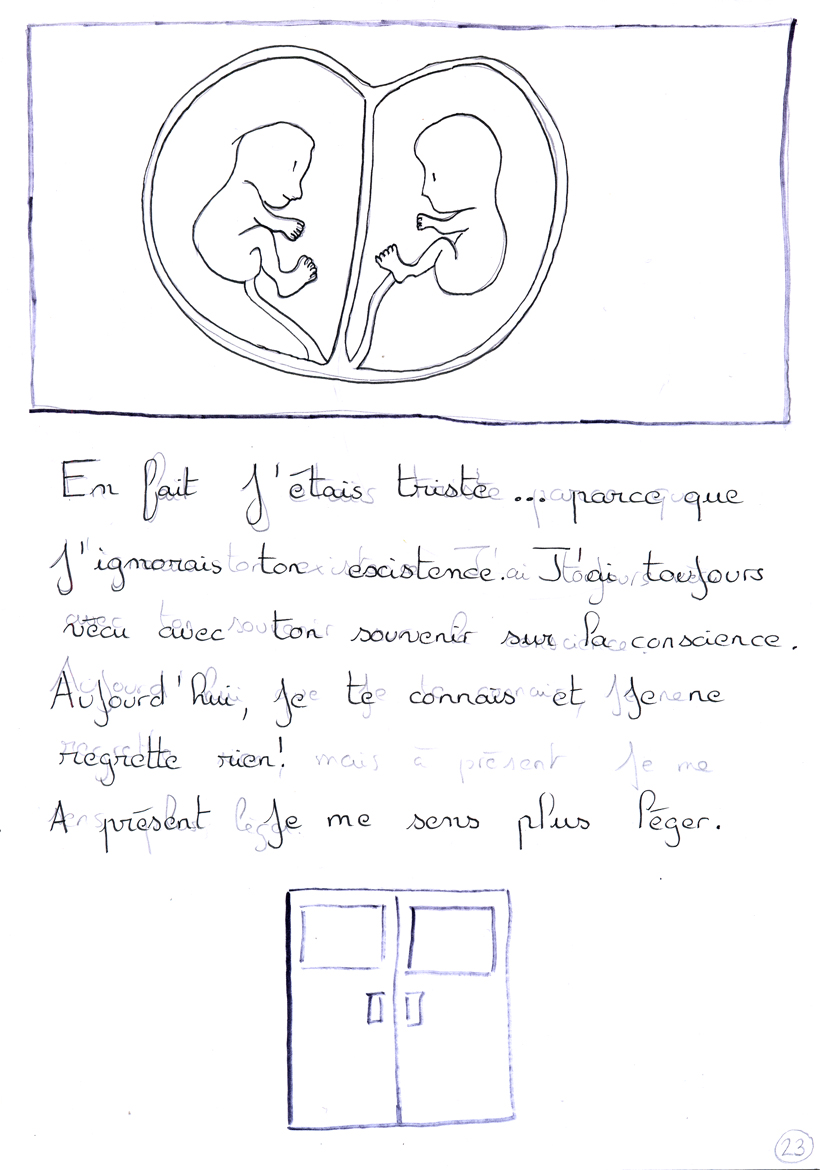 En fait J'étais triste ... parce que
J'ignorais ton existence. J'ai toujours
vécu avec ton souvenir sur la conscience.
Aujourd'hui, Je te connais et Je ne
regrette rien!
mais à présent Je me
A présent Je me sens plus léger.
23